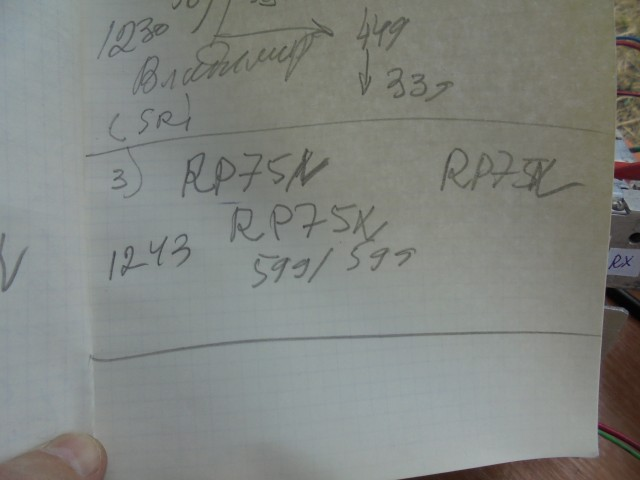 1230 449
Владимир ↓ 339
(SR)
3) RP75X RP75X
RP75X
1243 599/599
RX